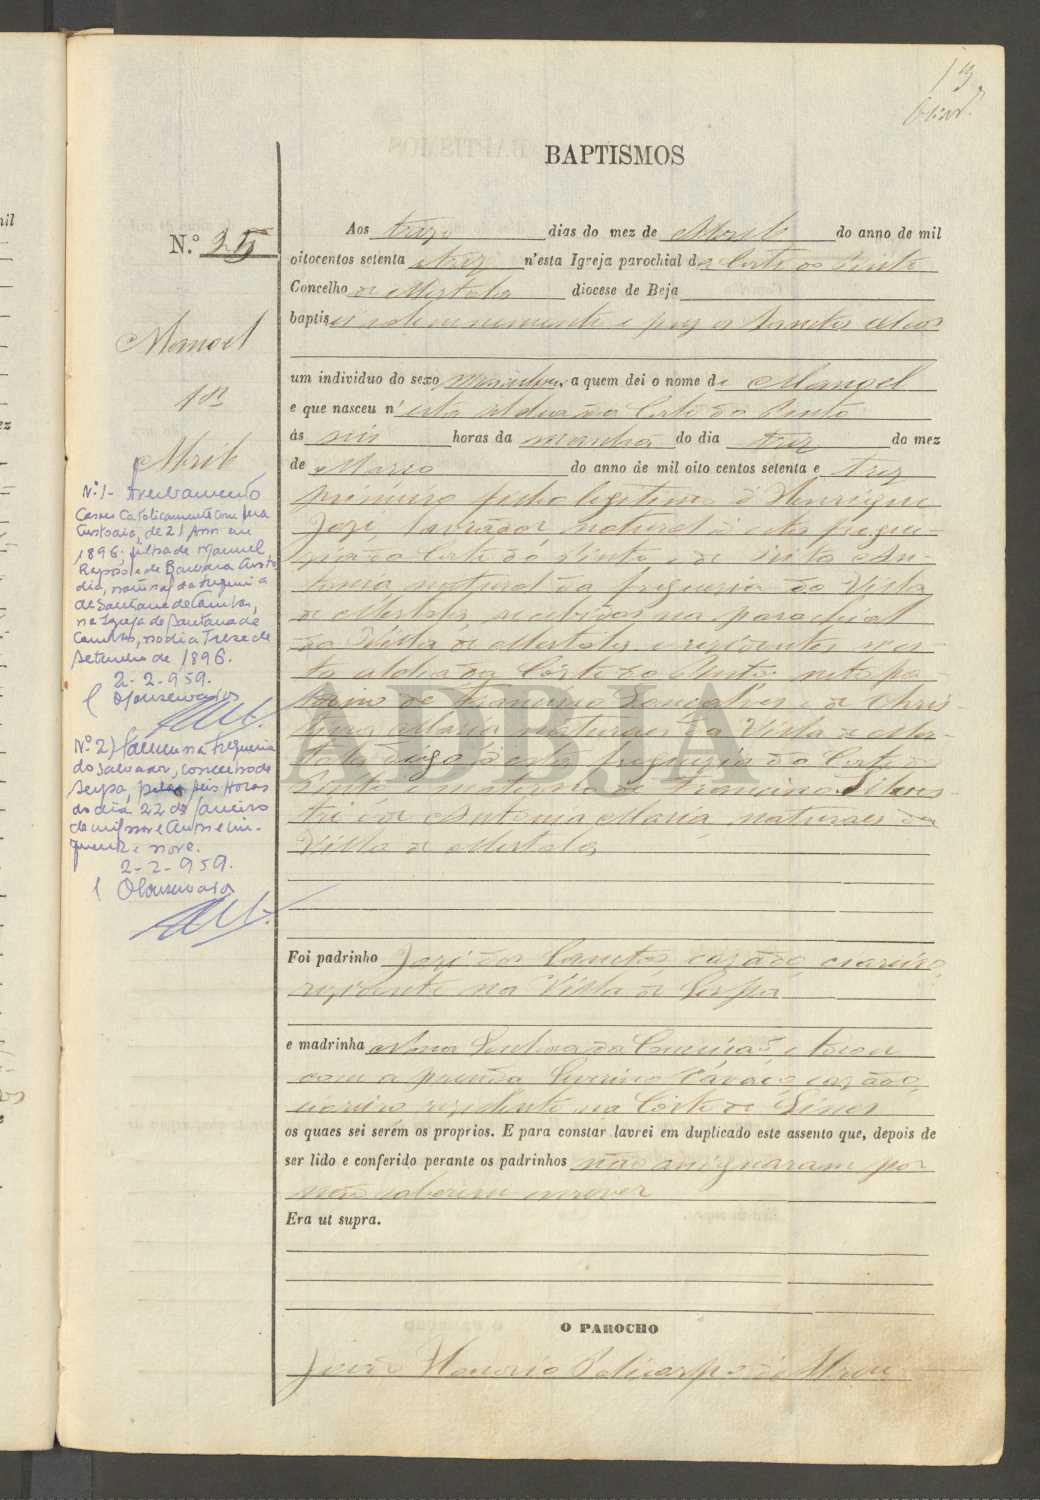 13
BAPTISMOS
N.º 35
Manoel
Abril
Aos treze dias do mez de Abril do anno de mil
oitocentos setenta e trez n'esta Igreja parochial da Corte do Pinto
Concelho de Mertola diocese de Beja
baptisei solemnemente e puz os Sanctos oleos
um individuo do sexo masculino, a quem dei o nome de Manoel
e que nasceu n'esta aldea da Corte do Pinto
ás seis horas da manhã do dia trez do mez
de Março do anno de mil oito centos setenta e trez
primeiro filho legitimo de Henrique
José, lavrador natural d'esta fregue
zia da Corte do Pinto e de An-
tonia natural da freguezia da Villa
de Mertola, recebidos na parochial
da Villa de Mertola e rezidentes n'es
ta aldea da Côrte do Pinto: neto pa-
terno de Francisco Gonçalves e de Chris
tina Maria naturaes da Villa de Mer
tola digo d'esta freguezia da Corte do
Pinto e materno de Francisco Silves-
tre e de Antonia Maria naturaes da
Villa de Mertola
Foi padrinho José dos Sanctos, cazado,
rezidente na Villa de Serpa
e madrinha Nossa Senhora da Conceição, e tocou
com a prenda Severino cazado,
rezidente na Côrte de
os quaes sei serém os proprios. E para constar lavrei em duplicado este assento que, depois de
ser lido e conferido perante os padrinhos não assignaram por
não saberem escrever
Era ut supra.
O PAROCHO
João Honorio Policarpo de Abreu
N.º 1- Averbamento
Casou Catolicamente com
Custodia, de 21 Anos em
1896. filha de Manuel
e de Barbara Custo
dia, natural da freguesia
de Santana de Cambas,
na Igreja de Santana de
Cambas, no dia Treze de
Setembro de 1896.
2-2-959.
O Conservador
N.º 2) Faleceu na freguesia
do Salvador, concelho de
Serpa, pelas seis Horas
do dia 22 de Janeiro
de mil nove centos e cin-
quenta e nove.
2-2-959.
O Conservador
ADBJA